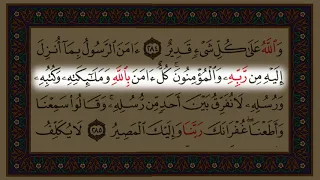 وَاللَّهُ عَلَىٰ كُلِّ شَىْءٍ قَدِيرٌ ٢٨٤ ءَامَنَ الرَّسُولُ بِمَآ أُنزِلَ
إِلَيْهِ مِن رَّبِّهِۦ وَالْمُؤْمِنُونَ ۚ كُلٌّ ءَامَنَ بِاللَّهِ وَمَلَـٰٓئِكَتِهِۦ وَكُتُبِهِۦ
وَرُسُلِهِۦ لَا نُفَرِّقُ بَيْنَ أَحَدٍ مِّن رُّسُلِهِۦ ۚ وَقَالُوا۟ سَمِعْنَا
وَأَطَعْنَا ۖ غُفْرَانَكَ رَبَّنَا وَإِلَيْكَ الْمَصِيرُ ٢٨٥ لَا يُكَلِّفُ